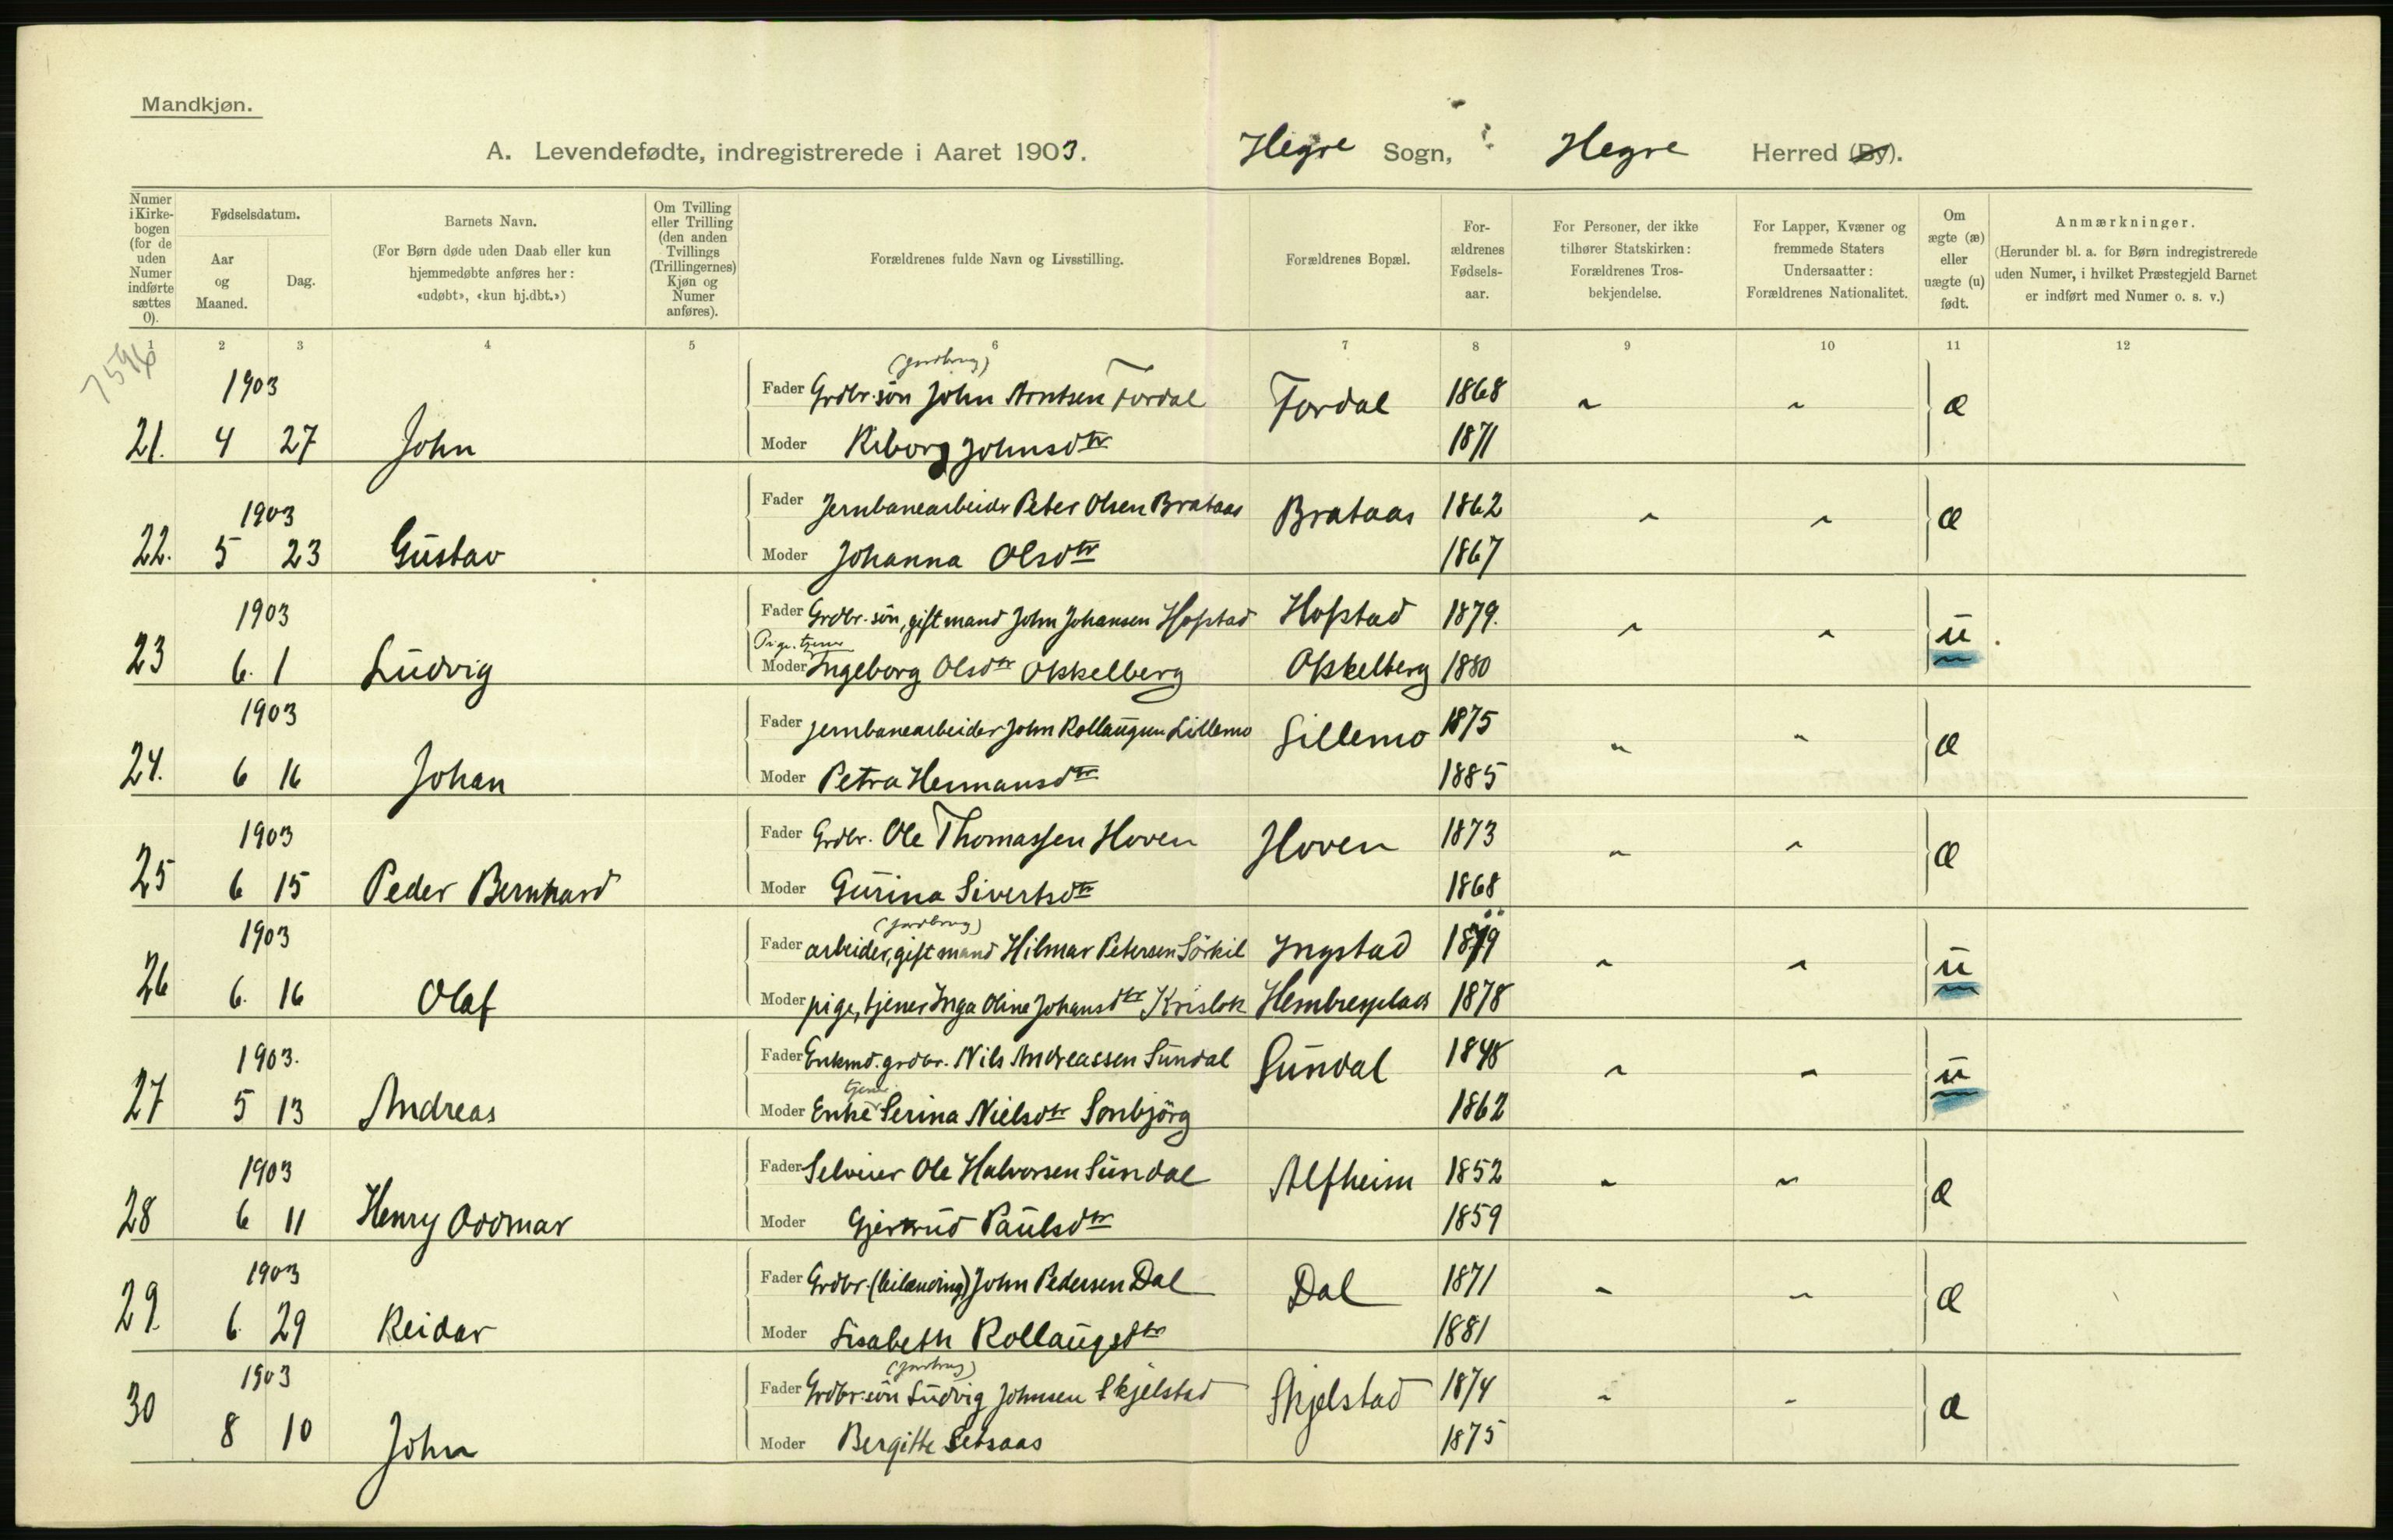 Mandkjøn.
A. Levendefødte, indregistrerede i Aaret 1903. Hegre Sogn, Hegre Herred (By).
Numer i Kirkebogen (for de uden Numer indførte sættes 0).
Fødselsdatum.
Aar og Maaned.
Dag.
Barnets Navn.
(For Børn døde uden Daab eller kun hjemmedøbte anføres her: «udøbt», «kun hj.dbt.»)
Om Tvilling eller Trilling (den anden Tvillings (Trillingernes) Kjøn og Numer anføres).
Forældrenes fulde Navn og Livsstilling.
Forældrenes Bopæl.
Forældrenes Fødselsaar.
For Personer, der ikke tilhører Statskirken: Forældrenes Trosbekjendelse.
For Lapper, Kvæner og fremmede Staters Undersaatter: Forældrenes Nationalitet.
Om ægte (æ) eller uægte (u) født.
Anmærkninger.
(Herunder bl. a. for Børn indregistrerede uden Numer, i hvilket Præstegjeld Barnet er indført med Numer o. s. v.)
1 2 3 4 5 6 7 8 9 10 11 12
(jordbrug)
1903 Fader Grdbr.søn John Arntsen Fordal Fordal 1868 æ
21. 4 27 John Moder Kiborg Johnsdtr 1871
1903 Fader Jernbanearbeider Peter Olsen Brataas Brataas 1862 æ
22. 5 23 Gustav Moder Johanna Olsdtr 1867
1903 Fader Grdbr. søn, gift mand John Johansen Hofstad Hofstad 1879. u
Pige. tjener
23 6. 1 Ludvig Moder Ingeborg Olsdtr Okkelberg Okkelberg 1880
1903 Fader jernbanearbeider John Rollaugsen Lillemo Lillemo 1875 æ
24. 6 16 Johan Moder Petra Hermansdtr 1885
1903 Fader Grdbr. Ole Thomassen Hoven Hoven 1873 æ
25 6 15 Peder Bernhard Moder Gurina Sivertsdtr 1868
(jordbrug)
1903 Fader arbeider, gift mand Hilmar Petersen Sörkil Ingstad 1879 u
26 6. 16 Olaf Moder pige, tjener Inga Oline Johansdtr Hembresplads 1878
1903. Fader Enkmd. grdbr. Nils Andreassen Sundal Sundal 1848 u
tjener
27 5 13 Andreas Moder Enke Serina Nielsdtr Sonbjörg 1862
1903 Fader Selveier Ole Halvorsen Sundal Alfheim 1852 æ
28 6 11 Henry Oddmar Moder Gjertrud Paulsdtr 1859
1903 Fader Grdbr. (leilænding) John Pedersen Dal Dal 1871 æ
29. 6. 29 Reidar Moder Lisabeth Rollaugsdtr 1881
(jordbrug)
1903 Fader Grdbr.søn Ludvig Johnsen Skjelstad Skjelstad 1874 æ
30 8 10 John Moder Bergitte Setsaas 1875